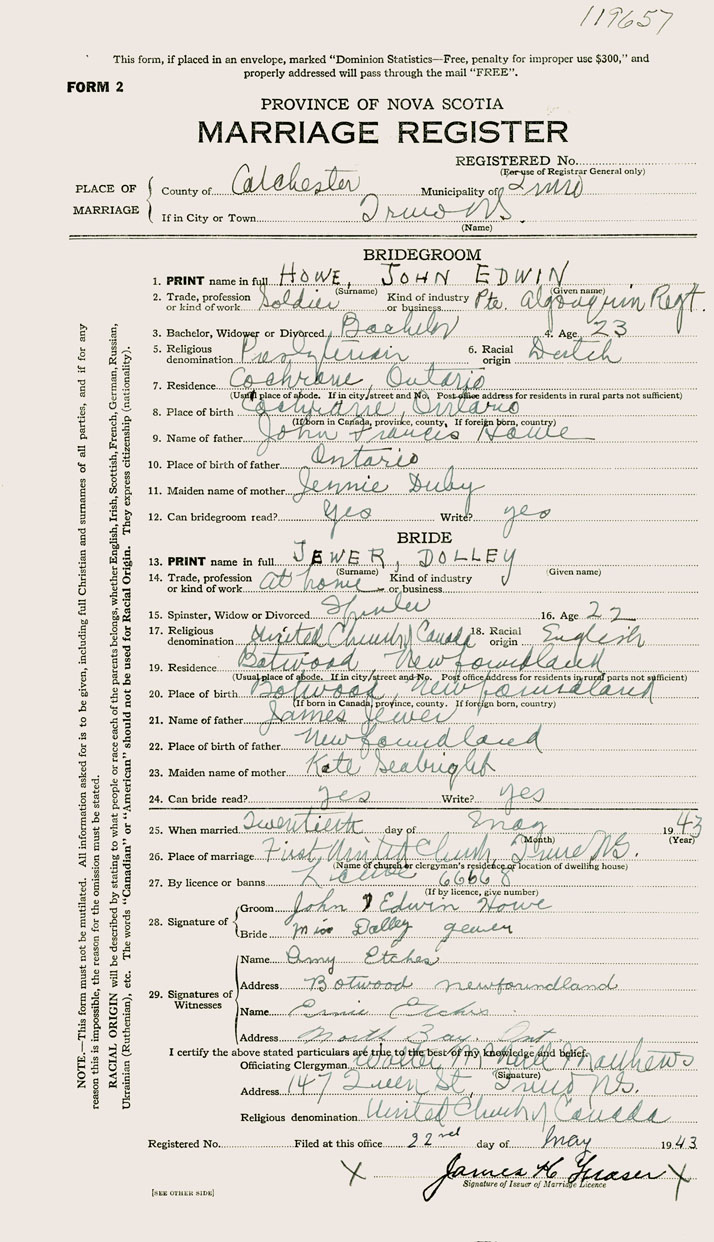 119657
This form, if placed in an envelope, marked "Dominion Statistics—Free, penalty for improper use $300," and
properly addressed will pass through the mail "FREE".
FORM 2
PROVINCE OF NOVA SCOTIA
MARRIAGE REGISTER
REGISTERED No.
(For use of Registrar General only)
PLACE OF MARRIAGE
County of Colchester Municipality of Truro
If in City or Town Truro N.S.
(Name)
BRIDEGROOM
1. PRINT name in full HOWE, JOHN EDWIN
(Surname) (Given name)
2. Trade, profession or kind of work Soldier Kind of industry or business Pte. Algonquin Regt.
3. Bachelor, Widower or Divorced Bachelor 4. Age 23
5. Religious denomination Presbyterian 6. Racial origin Dutch
7. Residence Cochrane, Ontario
(Usual place of abode. If in city, street and No. Post office address for residents in rural parts not sufficient)
8. Place of birth Cochrane, Ontario
(If born in Canada, province, county. If foreign born, country)
9. Name of father John Francis Howe
10. Place of birth of father Ontario
11. Maiden name of mother Jennie Duby
12. Can bridegroom read? Yes Write? yes
BRIDE
13. PRINT name in full JEWER, DOLLEY
(Surname) (Given name)
14. Trade, profession or kind of work At home Kind of industry or business
15. Spinster, Widow or Divorced 16. Age 22
17. Religious denomination United Church of Canada 18. Racial origin English
19. Residence Botwood Newfoundland
(Usual place of abode. If in city, street and No. Post office address for residents in rural parts not sufficient)
20. Place of birth Botwood, Newfoundland
(If born in Canada, province, county. If foreign born, country)
21. Name of father James Jewer
22. Place of birth of father Newfoundland
23. Maiden name of mother Kate Seabright
24. Can bride read? yes Write? yes
25. When married Twentieth day of May 1943
(Month) (Year)
26. Place of marriage First United Church, Truro N.S.
(Name of church or clergyman's residence or location of dwelling house)
27. By licence or banns 66668
(If by licence, give number)
28. Signature of
Groom John Edwin Howe
Bride Miss Dolley Jewer
29. Signatures of Witnesses
Name Amy Etches
Address Botwood Newfoundland
Name Ernie Etches
Address North Bay. Ont
I certify the above stated particulars are true to the best of my knowledge and belief.
Officiating Clergyman Matthews
(Signature)
Address 147 Queen St, Truro N.S.
Religious denomination United Church of Canada
Registered No. Filed at this office 22nd day of May 1943
X James H. Fraser X
Signature of Issuer of Marriage Licence
[SEE OTHER SIDE]
NOTE.—This form must not be mutilated. All information asked for is to be given, including full Christian and surnames of all parties, and if for any
reason this is impossible, the reason for the omission must be stated.
RACIAL ORIGIN will be described by stating to what people or race each of the parents belongs, whether English, Irish, Scottish, French, German, Russian,
Ukrainian (Ruthenian), etc. The words "Canadian" or "American" should not be used for Racial Origin. They express citizenship (nationality).